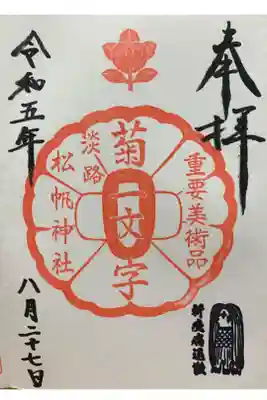 奉拝
重要美術品
菊一文字
淡路
松帆神社
令和五年
八月二十七日